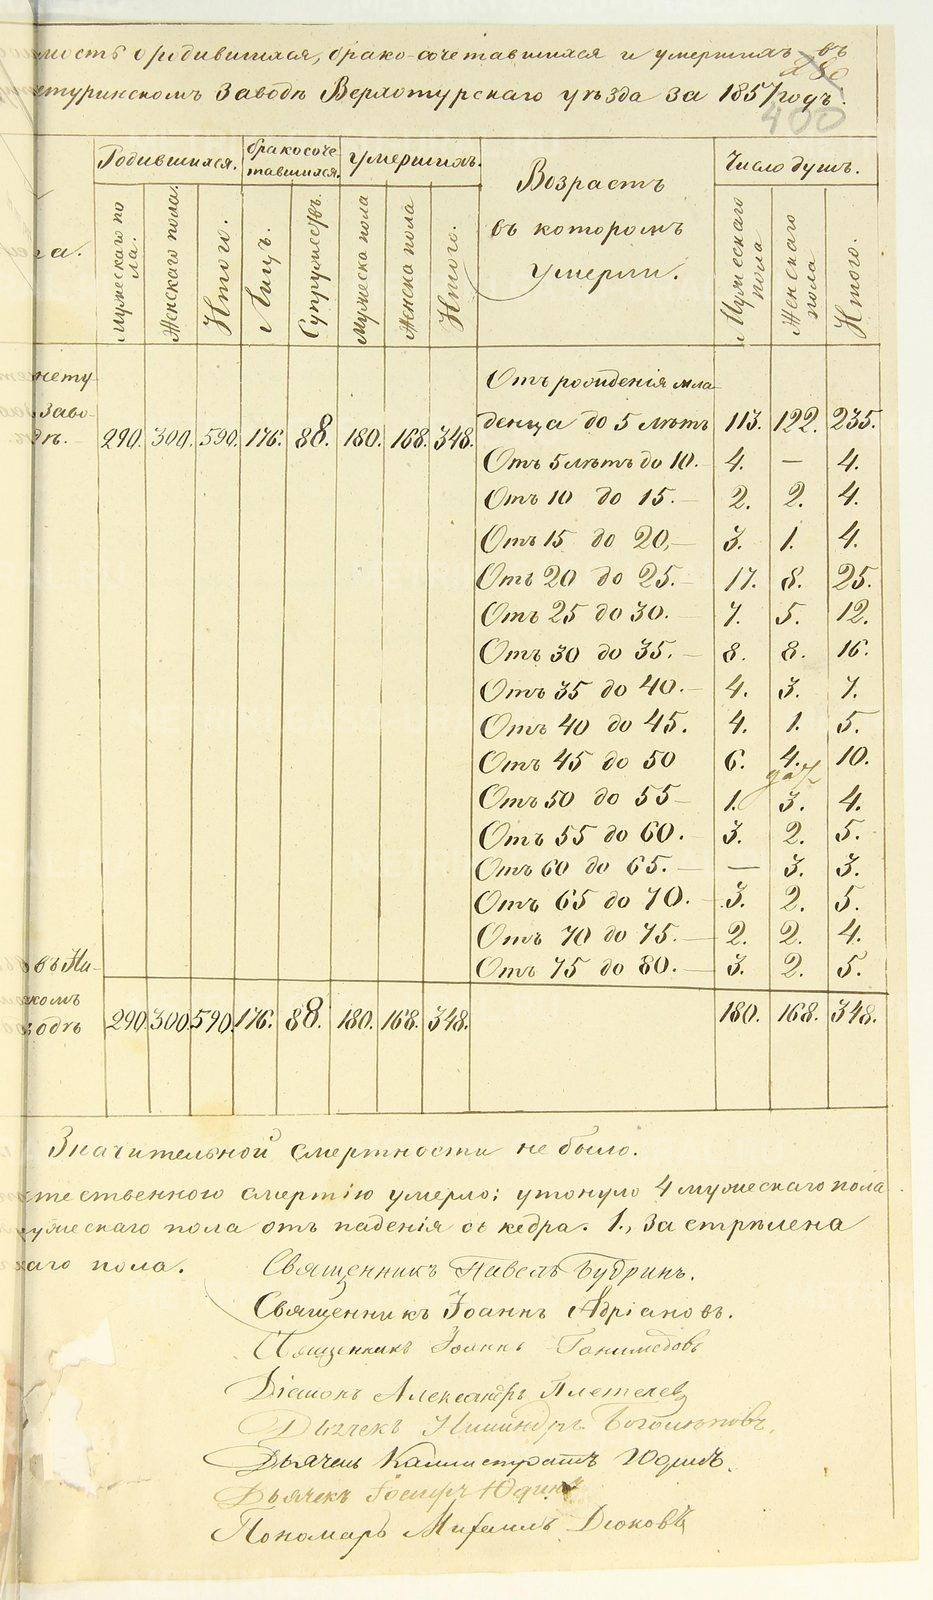 мость о родившихся, брако-сочетавшихся и умершихъ въ
етуринскомъ Заводѣ Верхотурскаго уѣзда за 1857 годъ.
400
Родившихся. бракосоче умершихъ. Возрастъ Число душъ.
тавшихся.
га. мужескаго по Женскаго пола. Итого. Лицъ. Супружествъ. Мужеска пола Женска пола Итого. въ которомъ Мужескаго Женскаго Итого.
ла. умерли. пола пола
нету Отъ рожденія мла
Заво- денца до 5 лѣтъ 113. 122. 235.
дѣ. 290. 300. 590. 176. 88. 180. 168. 348.
Отъ 5 лѣтъ до 10.— 4. — 4.
Отъ 10 до 15.— 2. 2. 4.
Отъ 15 до 20,— 3. 1. 4.
Отъ 20 до 25.— 17. 8. 25.
Отъ 25 до 30.— 7. 5. 12.
Отъ 30 до 35.— 8. 8. 16.
Отъ 35 до 40.— 4. 3. 7.
Отъ 40 до 45. 4. 1. 5.
Отъ 45 до 50 6. 4. 10.
Отъ 50 до 55— 1. 3. 4.
Отъ 55 до 60.— 3. 2. 5.
Отъ 60 до 65.— — 3. 3.
Отъ 65 до 70.— 3. 2. 5.
Отъ 70 до 75.— 2. 2. 4.
въ Ни- Отъ 75 до 80.— 3. 2. 5.
комъ
водѣ 290 300 590. 176. 88. 180. 168. 348. 180. 168. 348.
Значительной смертности не было.
стественною смертію умерло: утонуло 4 мужескаго пола
ужескаго пола отъ паденія съ кедра. 1., Застрѣлена
каго пола. Священникъ Павелъ Будринъ.
Священникъ Іоаннъ Адріановъ.
Священникъ Іоаннъ Ганимедовъ
Діаконъ Александръ
Дьячекъ Никандръ Боголюповъ.
Дьячекъ Каллистратъ Юдинъ.
Дьячекъ Юдинъ
Пономарь Михаилъ Дюковъ